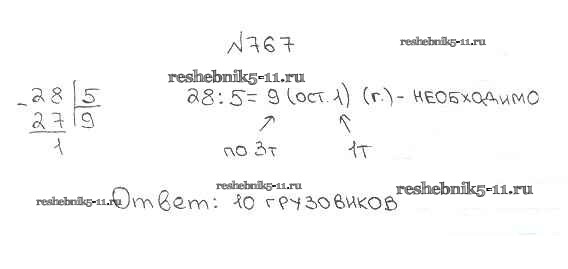 №767
reshebnik5-11.ru
reshebnik5-11.ru
- 28 | 5
27 | 9
1
28 : 5 = 9 (ост. 1) (г.) - НЕОБХОДИМО
по 3т 1т
reshebnik5-11.ru
reshebnik5-11.ru
reshebnik5-11.ru
Ответ: 10 грузовиков